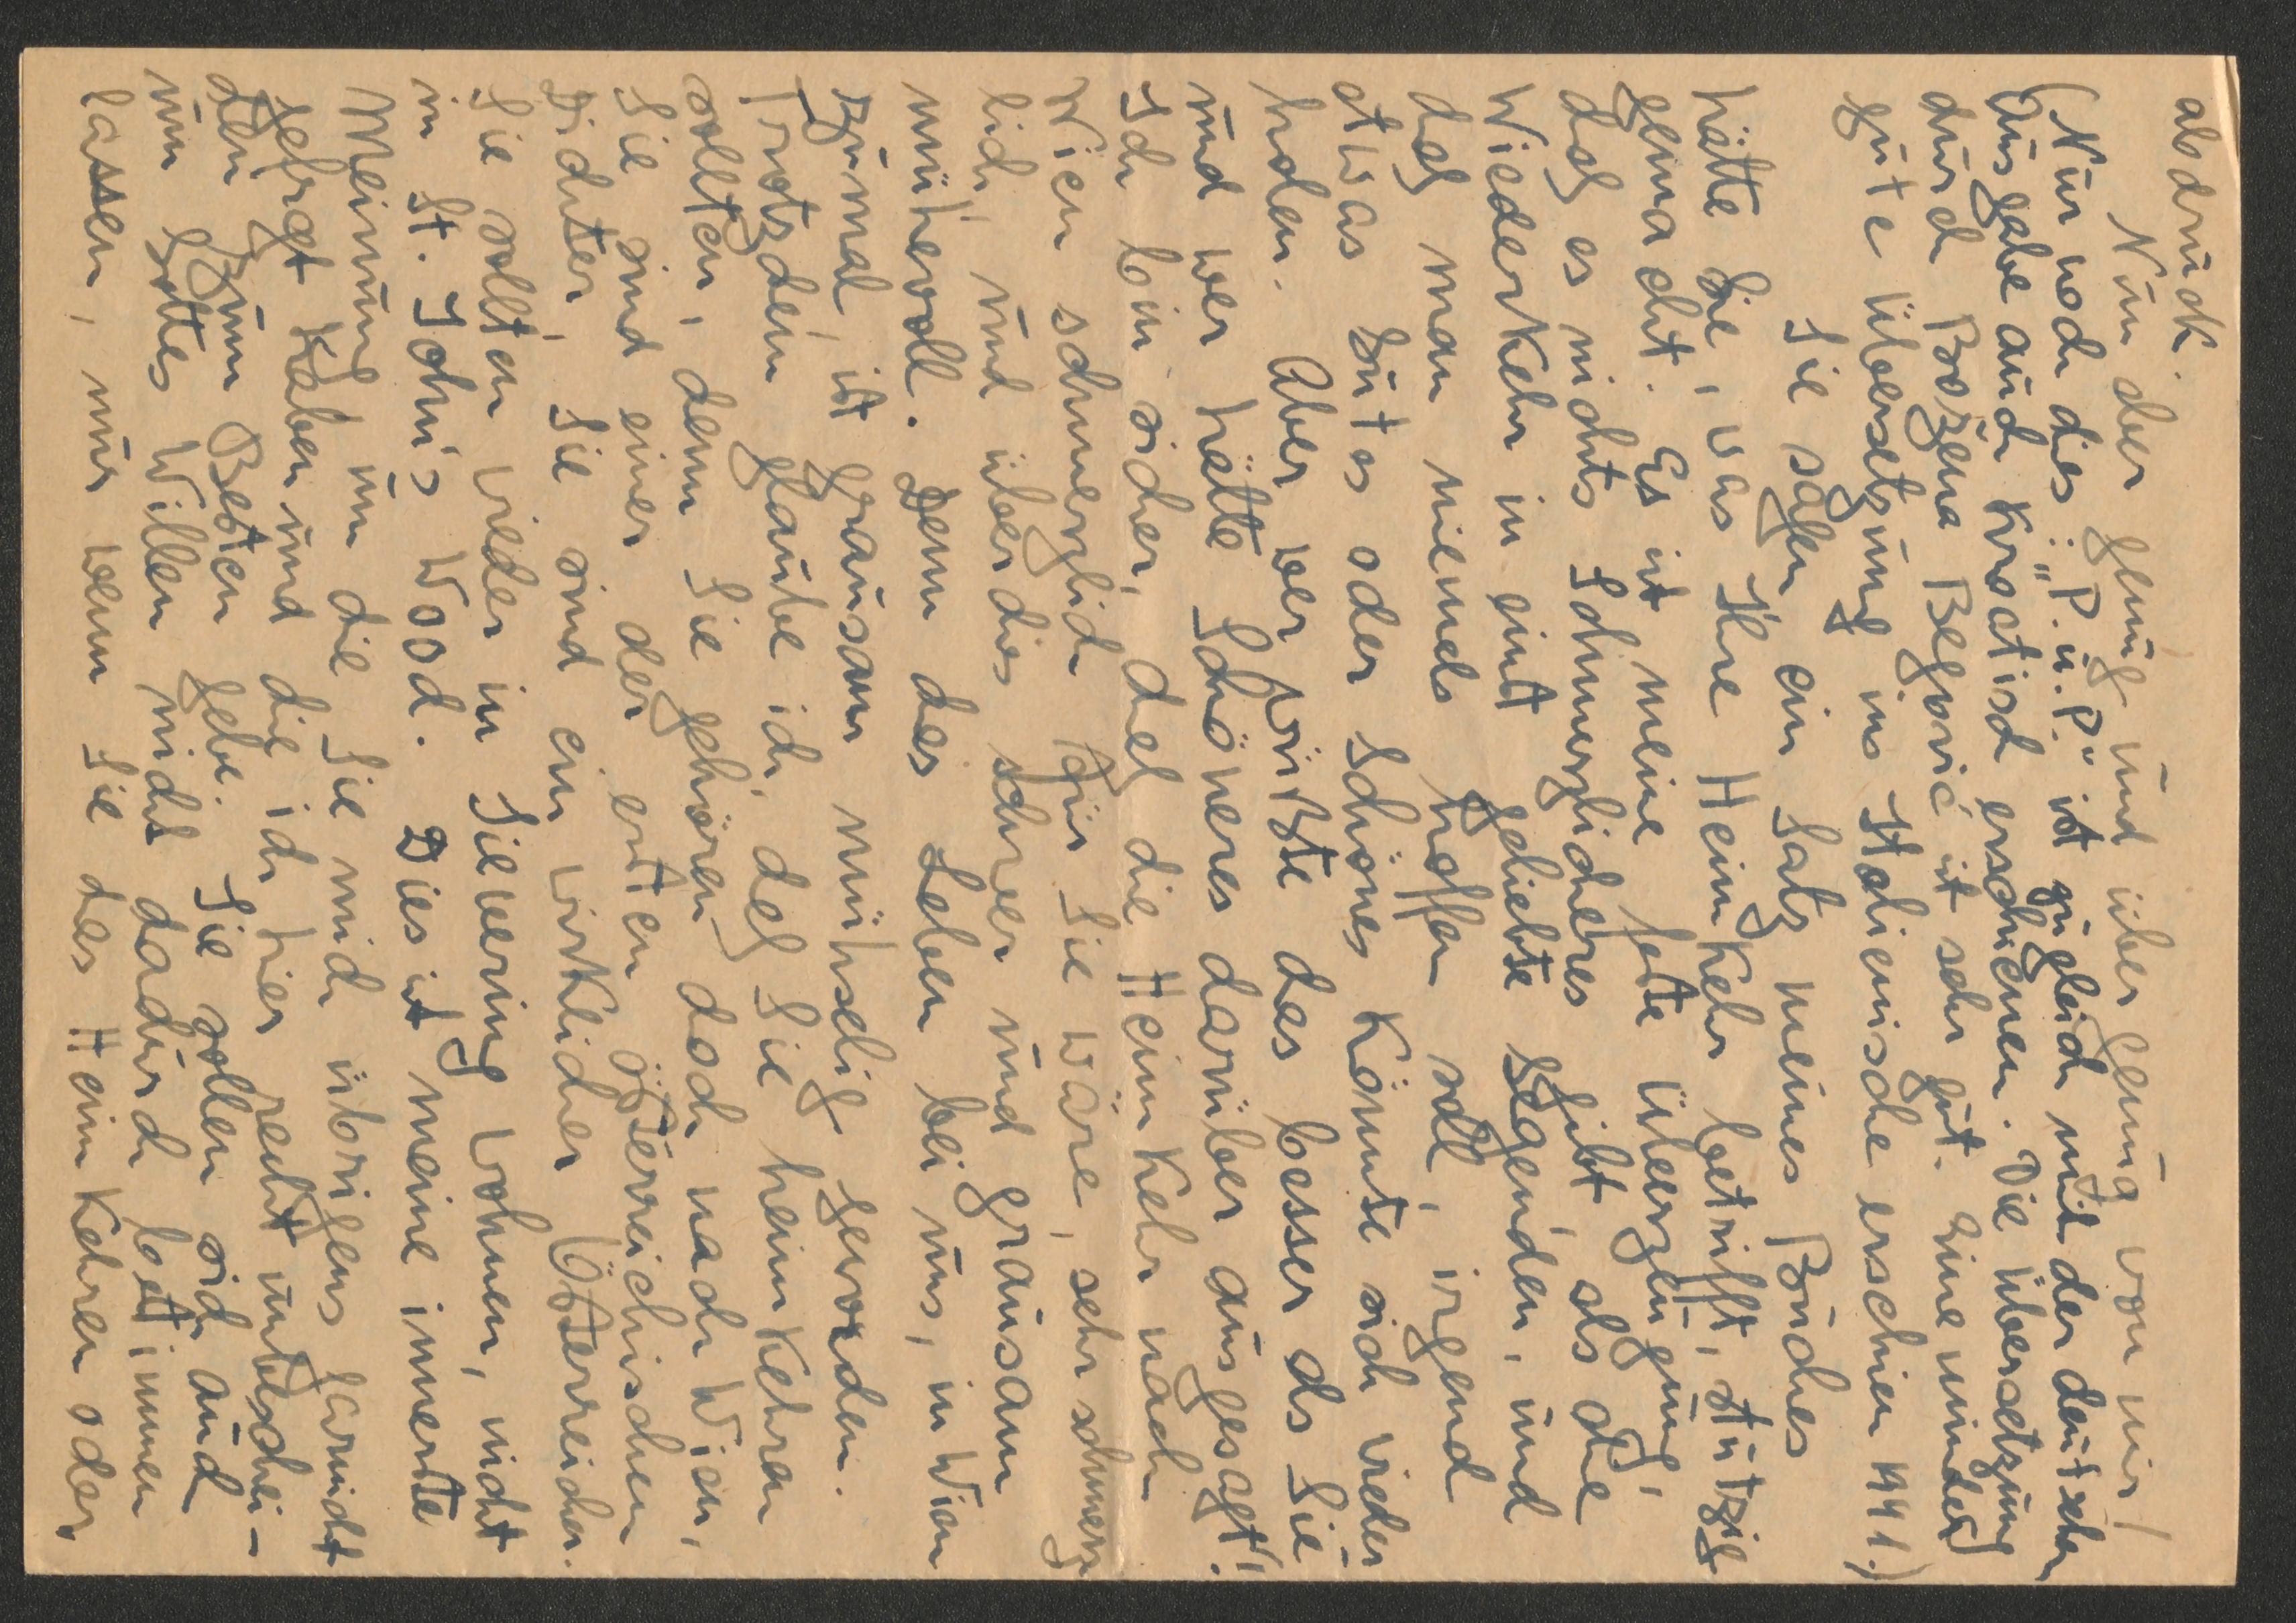 abdruck.
Nun aber genug und übergenug von mir!
(Nur noch dies: "P. u. P." ist zugleich mit der deutschen
Ausgabe auch kroatisch erschienen. Die Übersetzung
durch Božena Begović ist sehr gut. Eine minder
gute Übersetzung ins Italienische erschien 1941.)
Sie sagen ein Satz meines Buches
hätte Sie, was Ihre Heimkehr betrifft, stutzig
gemacht. Es ist meine feste Überzeugung,
daß es nichts Schmerzlicheres gibt, als die
Wiederkehr in einst geliebte Gegenden, und
daß man niemals hoffen soll, irgend
etwas Gutes oder Schönes könnte sich wieder-
holen. Aber wer wüßte das besser als Sie
und wer hätte Schöneres darüber ausgesagt!
Ich bin sicher, daß die Heimkehr nach
Wien schmerzlich für Sie wäre, sehr schmerz-
lich, und überdies schwer und grausam
mühevoll. Denn das Leben bei uns, in Wien
zumal, ist grausam mühselig geworden.
Trotzdem glaube ich, daß Sie heimkehren
sollten, denn Sie gehören doch nach Wien,
Sie sind einer der ersten österreichischen
Dichter, Sie sind ein wirklicher Österreicher.
Sie sollten wieder in Sievering wohnen, nicht
in St. John's Wood. Dies ist meine innerste
Meinung um die Sie mich übrigens garnicht
gefragt haben und die ich hier recht unbeschei-
den zum Besten gebe. Sie sollen sich auch
um Gottes Willen nicht dadurch bestimmen
lassen, nur wenn Sie das Heimkehren oder